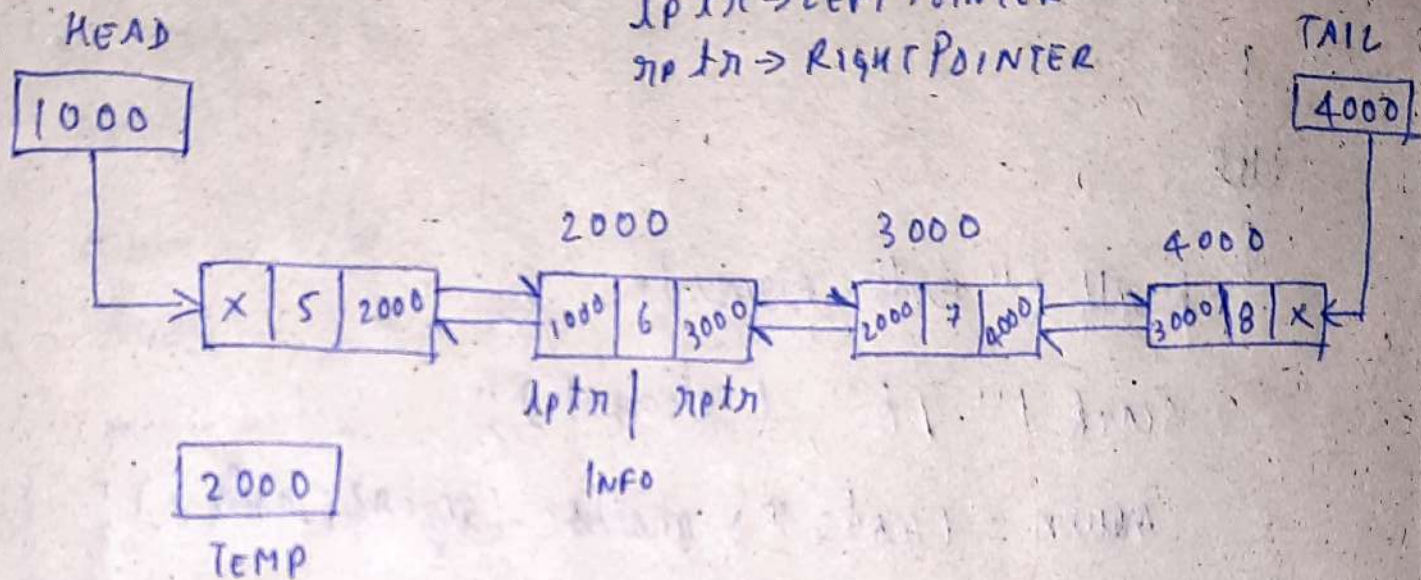 lptr → LEFT POINTER
rptr → RIGHT POINTER
HEAD
TAIL
1000
4000
2000
3000
4000
X 5 2000
1000 6 3000
2000 7 4000
3000 8 X
lptr | rptr
INFO
2000
TEMP